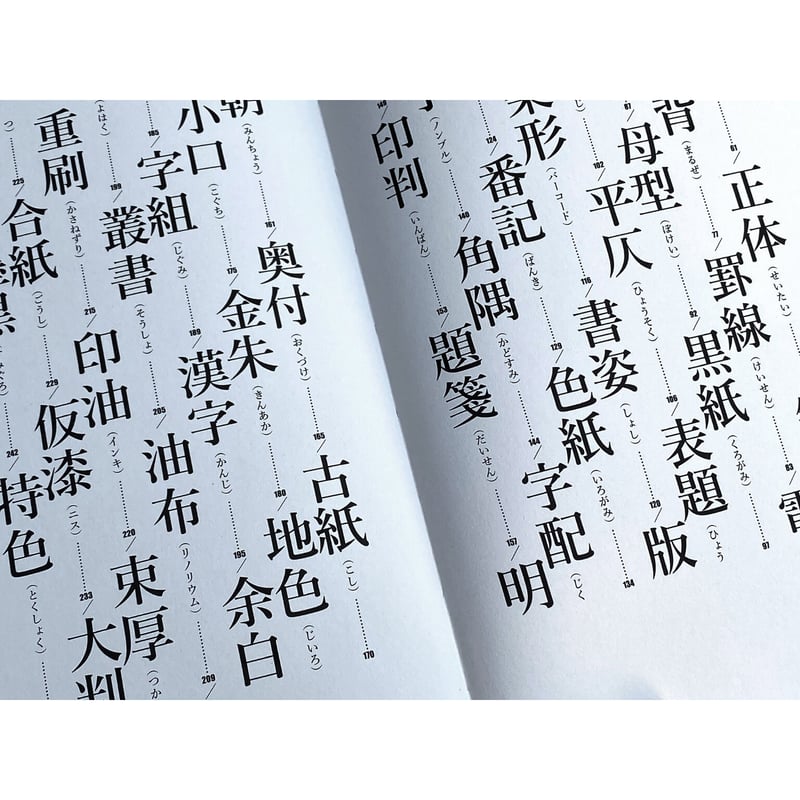 61/正体（せいたい）
背（まるぜ）……77/罫線（けいせん）……83/
67/母型（ぼけい）……92/黒紙（くろがみ）……97
）……102/平仄（ひょうそく）……106/表題（ひょう
形（バーコード）……116/書姿（しょし）……120/版
124/番記（ばんき）……129/色紙（いろがみ）……134
（ノンブル）……140/角隅（かどすみ）……144/字配（じく
149/印判（いんばん）……153/題箋（だいせん）……157/明
朝（みんちょう）……161/奥付（おくづけ）……165/古紙（こし）……170
小口（こぐち）……175/金朱（きんあか）……180/地色（じいろ）
185/字組（じぐみ）……189/漢字（かんじ）……195/余白
（よはく）……199/叢書（そうしょ）……205/油布（リノリウム）……209/
重刷（かさねずり）……215/印油（インキ）……220/束厚（つか
つ）……225/合紙（ごうし）……229/仮漆（ニス）……233/大判
黒 ぐろ）……242/特色（とくしょく）